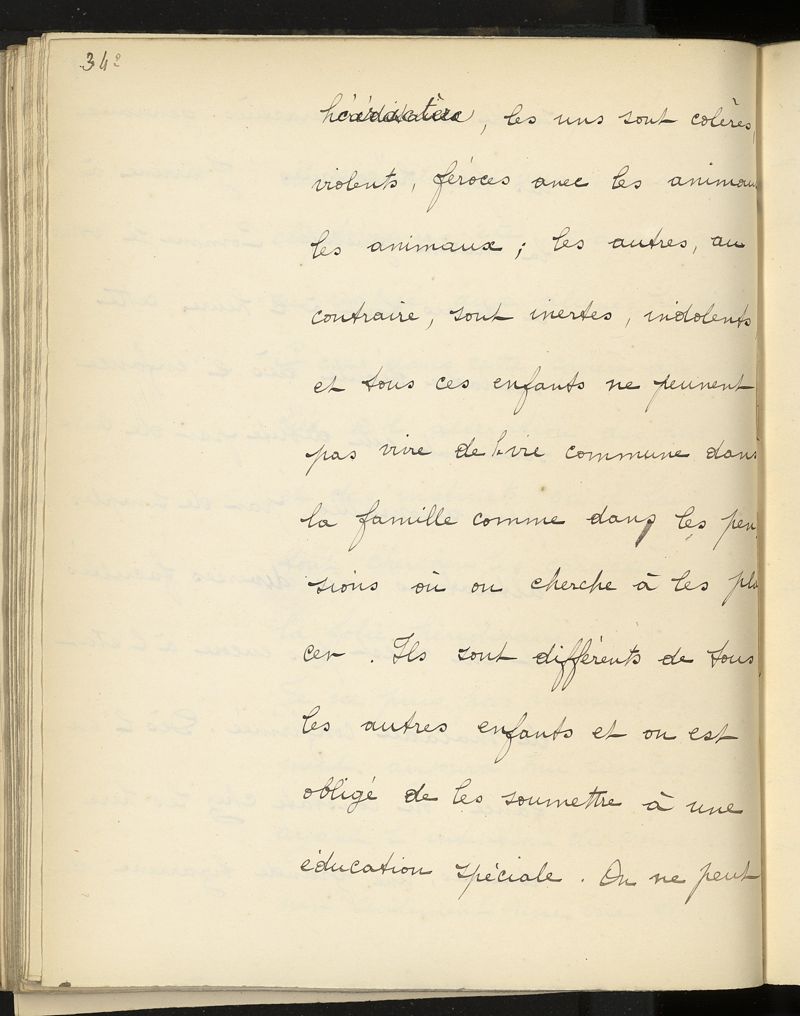 34²
caractère, les uns sont colères,
violents, féroces avec les animaux
les animaux ; les autres, au
contraire, sont inertes, indolents,
et tous ces enfants ne peuvent
pas vivre de la vie commune dans
la famille comme dans les pen
sions où on cherche à les pla
cer. Ils sont différents de tous
les autres enfants et on est
obligé de les soumettre à une
éducation spéciale. On ne peut